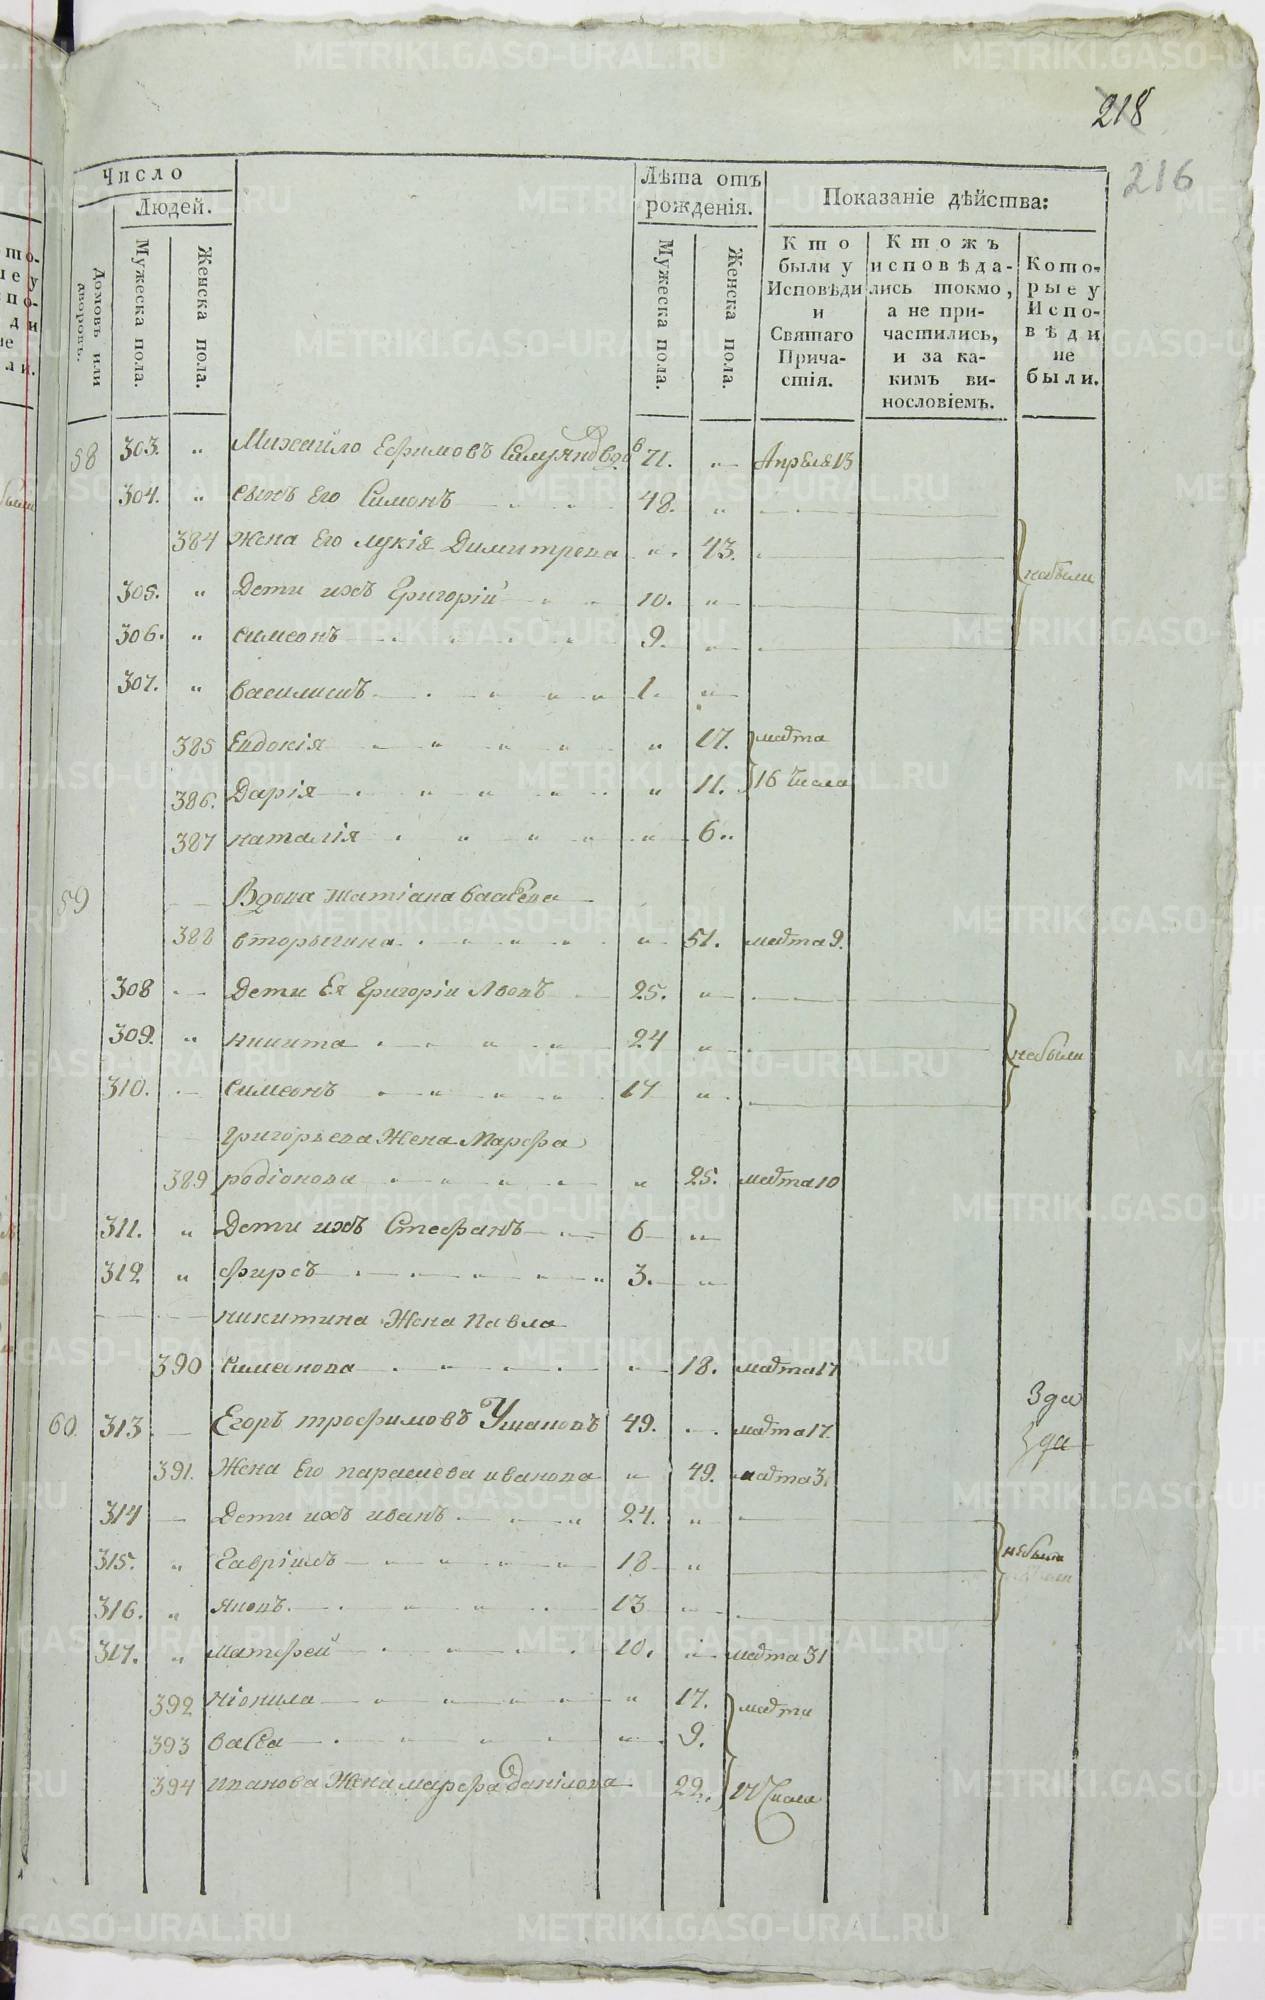 218
216
Число
Людей.
Домовъ или дворовъ.
Мужеска пола.
Женска пола.
Лѣта отъ рожденія.
Мужеска пола.
Женска пола.
Показаніе дѣйства:
Кто были у Исповѣди и Святаго Причастія.
Ктожъ исповѣдались токмо, а не причастились, и за какимъ винословіемъ.
Которые у Исповѣди не были.
58 303. " Михайло Ефимовъ 71. " Апреля 13
304. " сынъ Его Симонъ 48. "
384 Жена Его лукія Димитрева " 43.
небыли
305. " Дети ихъ Григорій 10. "
306. " симеонъ 9. "
307. " василиятъ 1. "
385 Евдокія " 17. марта
386. Дарія " 11. 16 числа
387 наталія " 6 "
59 Вдова татіана
388 вторыгина " 51. марта 9.
308 Дети Ея Григоріи Львовъ 25. "
309. " никита 24 "
небыли
310. симеонъ 17 "
Григорьева Жена Марфа
389 родіонова " 25. марта 10
311. " Дети ихъ Стефанъ 6 "
312 " фирсъ 3. "
никитина Жена Павла
390 симанова 18. марта 17
Зда
60. 313 Егоръ трофимовъ Ушаковъ 49. марта 17.
Зда
391. Жена Его параскева иванова " 49. марта 31
314 Дети ихъ иванъ 24. "
315. " Гавріилъ 18 "
небыли
316. " яковъ 13
317. " матфей 10. марта 31
392 неонила " 17. марта
393 васса " 9.
394 иванова Жена марфа данілова 22. 17 Числа
METRIKI.GASO-URAL.RU